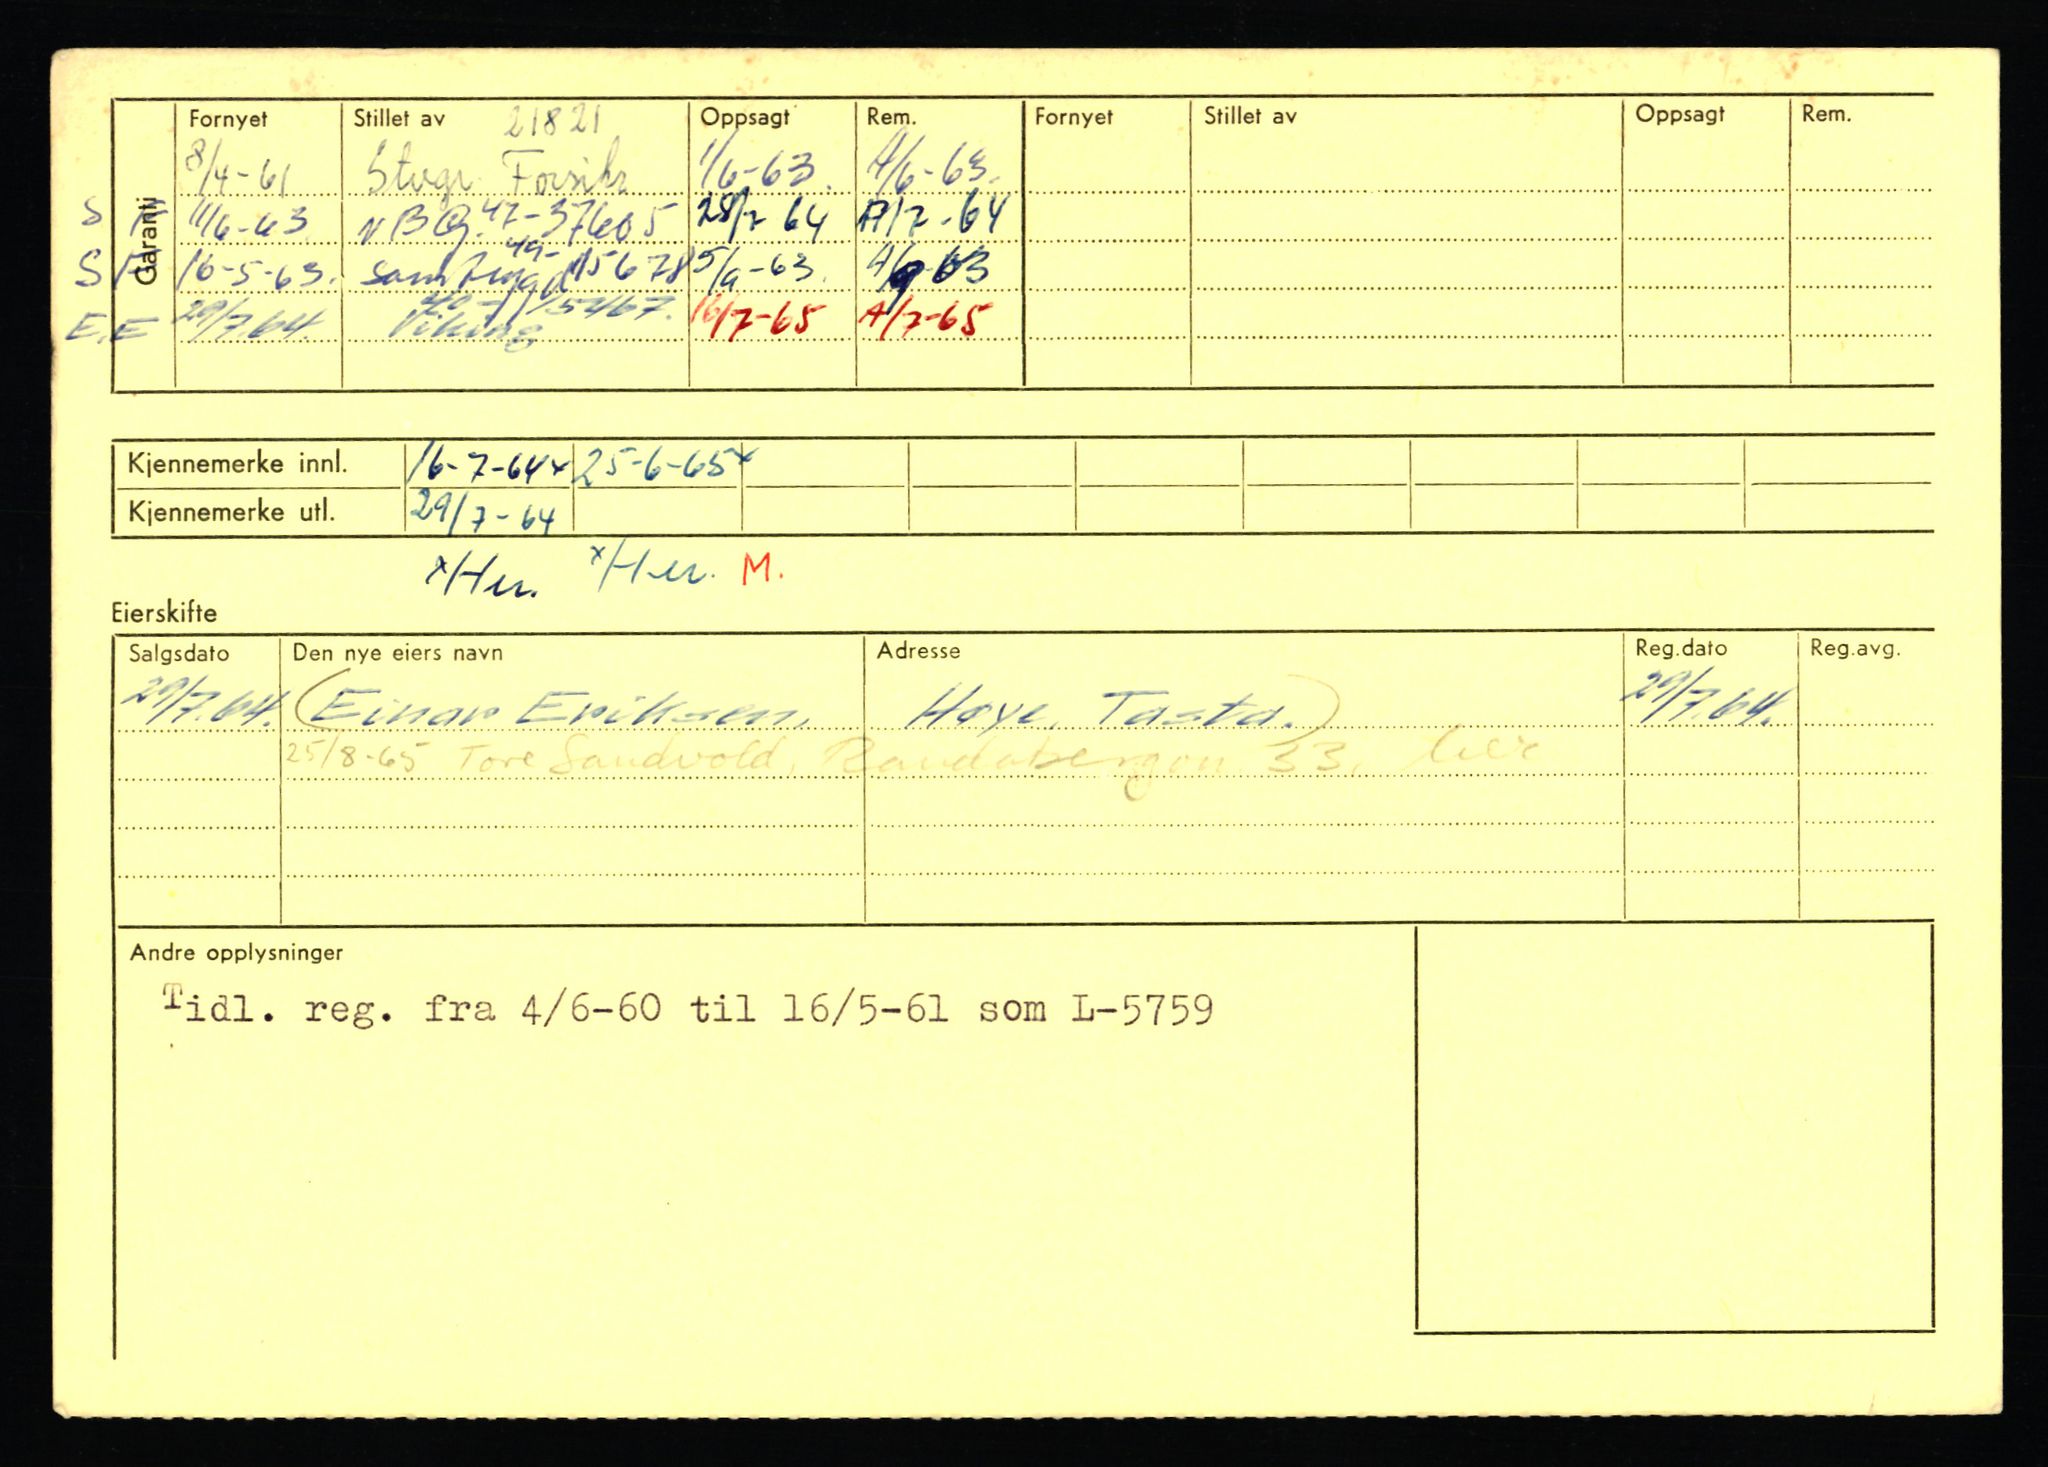 Garanti
Fornyet Stillet av 21821 Oppsagt Rem. Fornyet Stillet av Oppsagt Rem.
8/4-61 Stvgr. Forsikr 1/6-63. A/6-63.
S 11/6-63 47-37605 28/7 64 A/7-64
S 16-5-63. Samtrygd 49-15678 5/9-63. A/9-63
E.E 29/7.64. Viking 16/7-65 A/7-65
Kjennemerke innl. 16-7-64x 25-6-65x
Kjennemerke utl. 29/7-64
x/Her. x/Her. M.
Eierskifte
Salgsdato Den nye eiers navn Adresse Reg.dato Reg.avg.
29/7.64. (Einar Eriksen, Høye, Tasta.) 29/7.64.
25/8-65 Tore Sandvold, 33, her
Andre opplysninger
Tidl. reg. fra 4/6-60 til 16/5-61 som L-5759